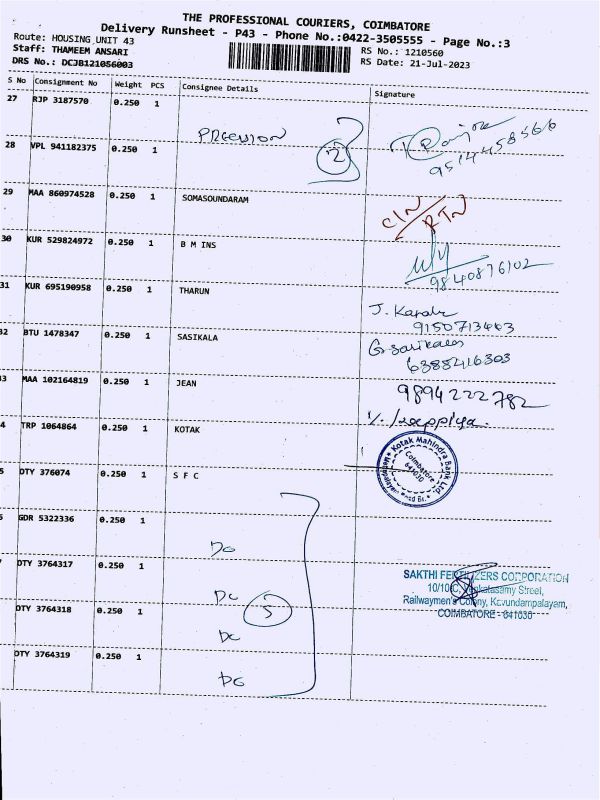 THE PROFESSIONAL COURIERS, COIMBATORE
Delivery Runsheet - P43 - Phone No.:0422-3505555 - Page No.:3
Route: HOUSING UNIT 43
Staff: THAMEEM ANSARI
DRS No.: DCJB121056003
RS No.: 1210560
RS Date: 21-Jul-2023
S No Consignment No Weight PCS Consignee Details Signature
27 RJP 3187570 0.250 1
9514458566
28 VPL 941182375 0.250 1 2
29 MAA 860974528 0.250 1 SOMASOUNDARAM
CIN/RTN
30 KUR 529824972 0.250 1 B M INS
9840876102
31 KUR 695190958 0.250 1 THARUN
9150713463
32 BTU 1478347 0.250 1 SASIKALA G. Sasikala
6388416303
33 MAA 102164819 0.250 1 JEAN 9894222782
4 TRP 1064864 0.250 1 KOTAK
Kotak Mahindra Bank Ltd.
Coimbatore
641030
5 DTY 376074 0.250 1 S F C
6 GDR 5322336 0.250 1 DC
7 DTY 3764317 0.250 1 DC
SAKTHI FERTILIZERS CORPORATION
10/10 C, Street,
Railwaymen's Colony, Kavundampalayam,
COIMBATORE - 641030
DTY 3764318 0.250 1 DC 5
DTY 3764319 0.250 1 DC